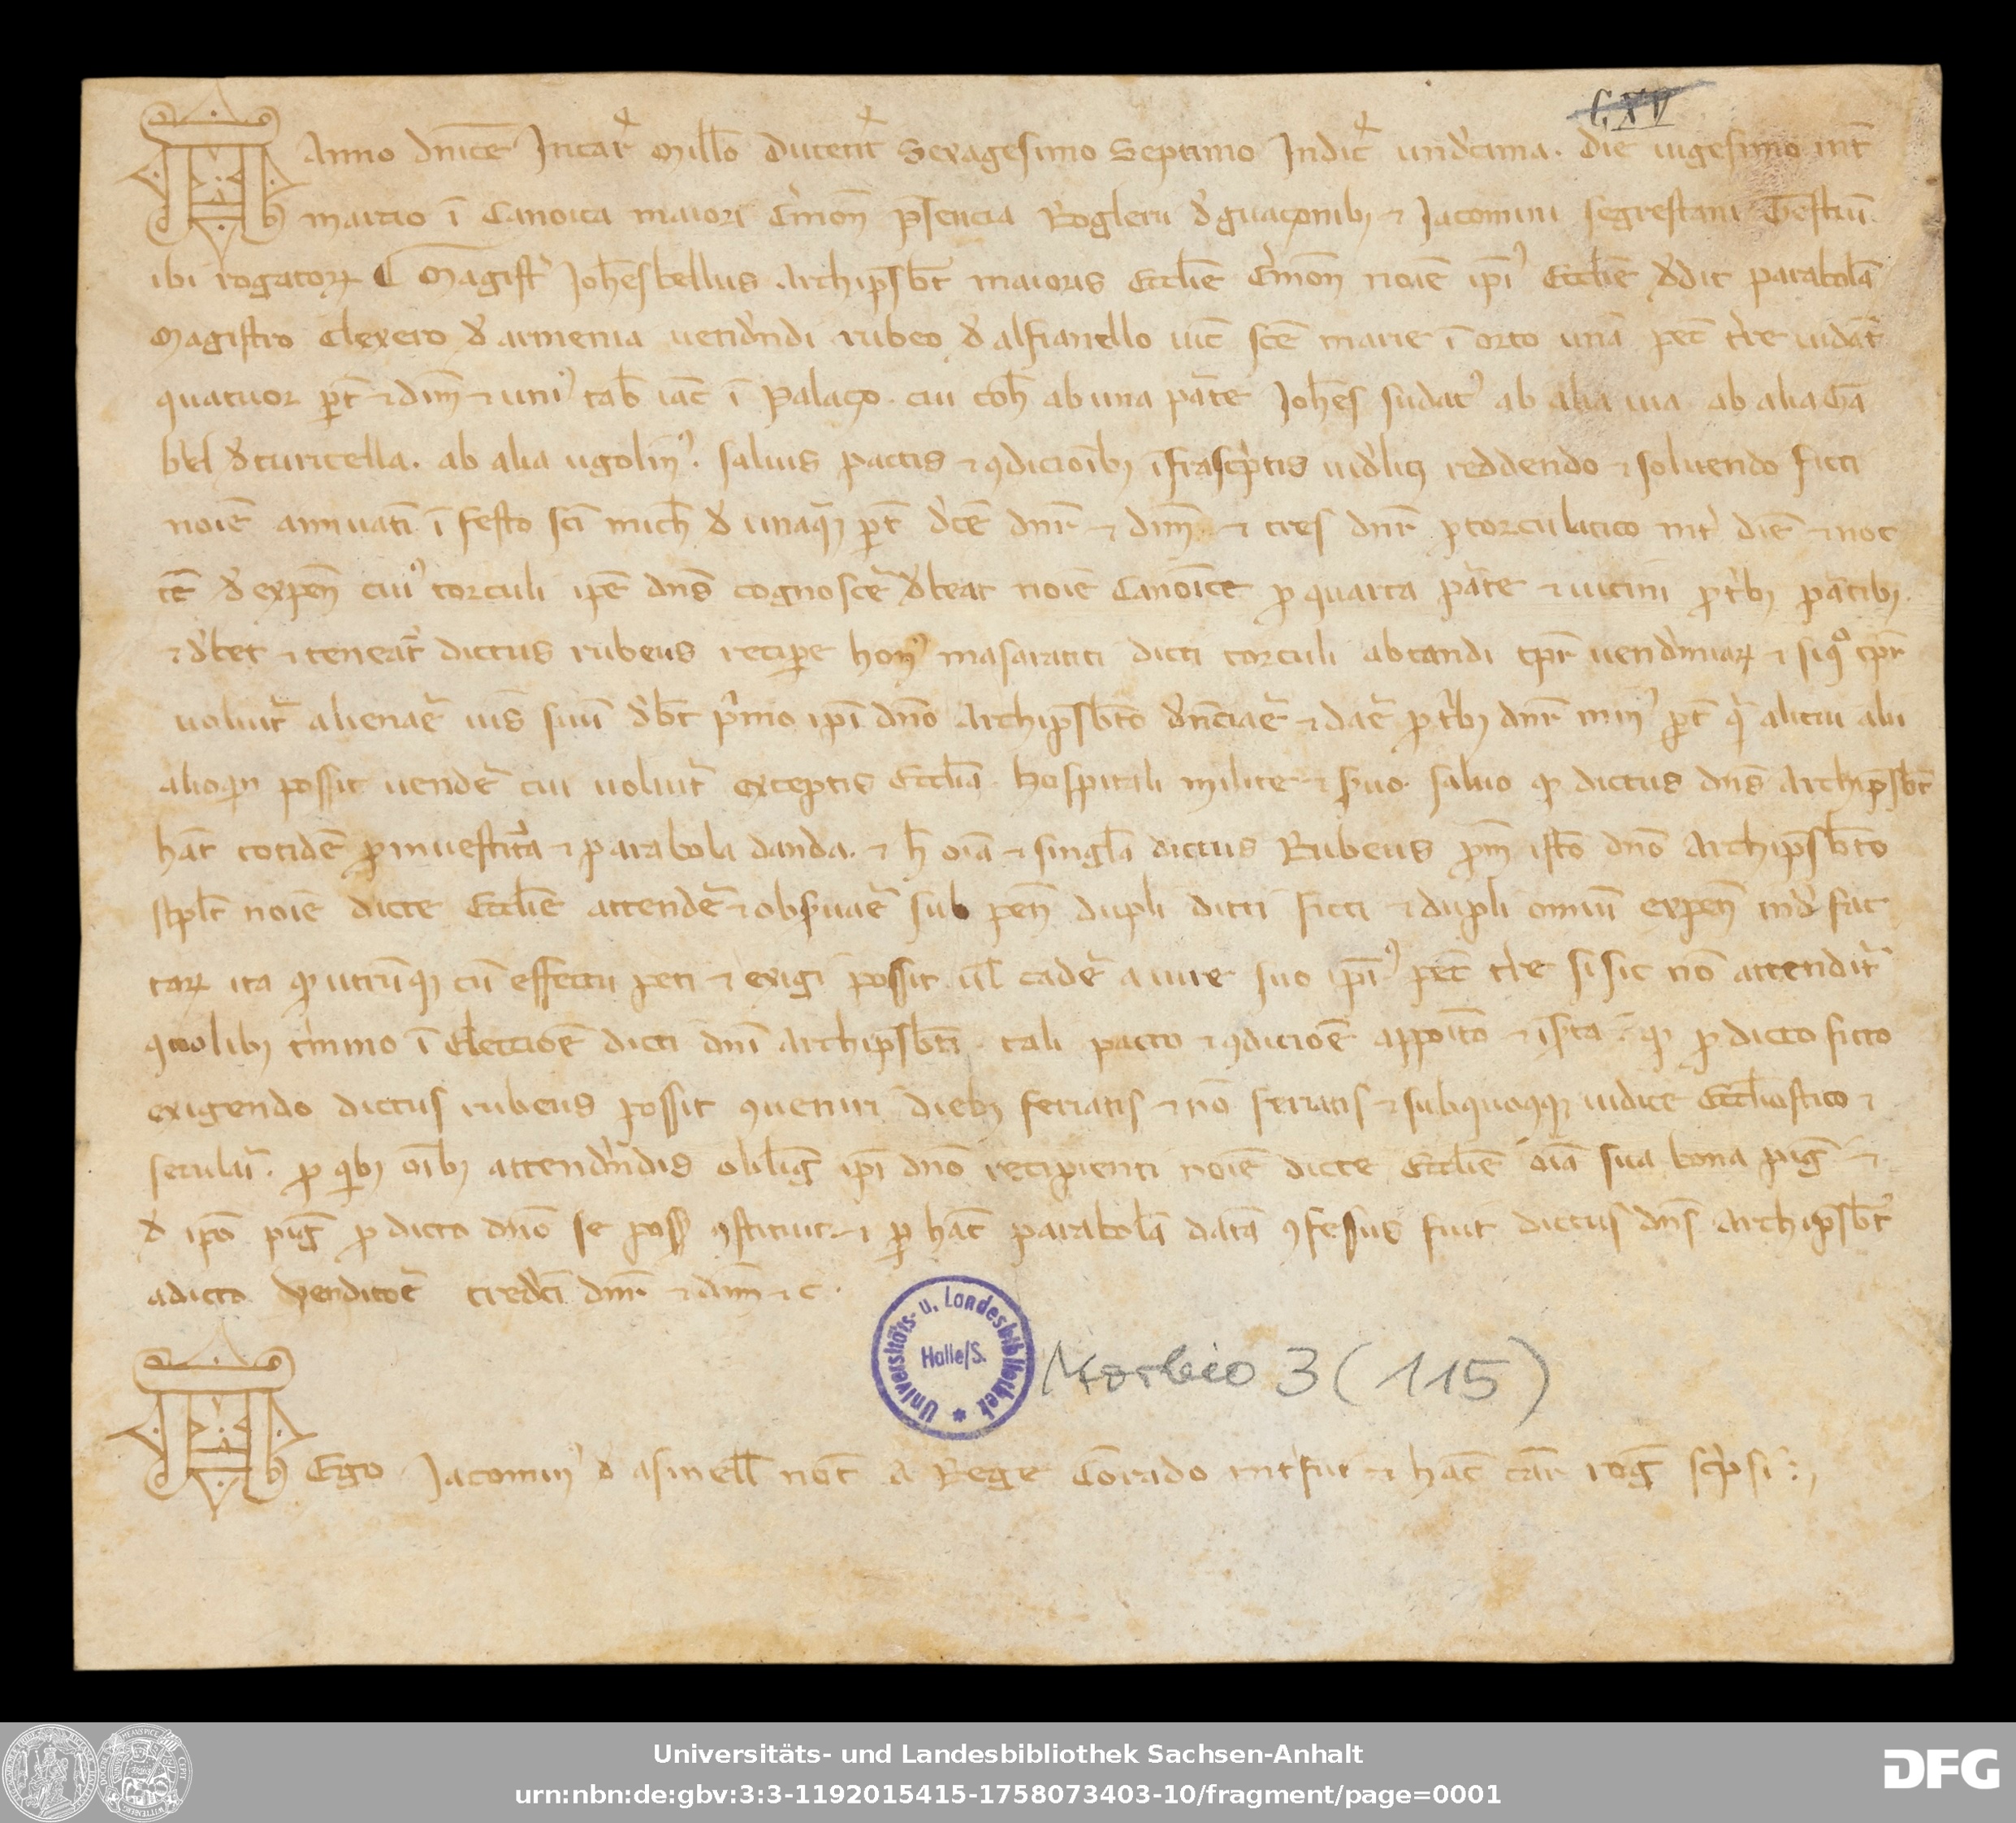 CXV
Anno dnice Incar Millo Ducent Sexagesimo Septimo Indic undecima. die uigesimo int
martio ī Canoica maiori Cmon psencia Roglerii de guaçonib; ⁊ Jacomini segrestani Testiū
ibi rogatoꝝ Magistr Johesbellus Archipsbt maioris Ecclie Cmon noie ipi⁹ Ecclie dedit parabolā
Magistro Clexero de armenia uendendi rubeo de alfianello uic sce marie ī orto unā pec tre uidat
quatuor pt ⁊ dim ⁊ uni⁹ tab iac ī Palaço. cui coh ab una parte Johes sudat⁹ ab alia uia ab alia Ga
bel de turicella. ab alia ugolin⁹. saluis pactis ⁊ ꝯdicioīb; īfrascptis uidelic; reddendo ⁊ soluendo ficti
noie annuatī ī festo sci mich de unaq; pt dece dnr ⁊ dim. ⁊ tres dnr p torculatico int diē ⁊ noc
tē de expen cui⁹ torculi ipe dns cognosce debeat noie Canoice p quarta parte ⁊ uicini p trib; partib;
⁊ debet ⁊ teneat dictus rubeus recipe hon⁹ masaratici dicti torculi abtandi tpr uendemiaꝝ ⁊ siqᵒ tpr
uoluit alienare ius suū debt pmo ipi dno Archipsbto denciare ⁊ dare p trib; dnr min⁹ pt q alicui alii
alioqn possit uende cui uoluit exceptis Ecclia Hospitali milite ⁊ suo. saluo qd dictus dns Archipsbt
hat totidē p inuestita ⁊ parabola danda. ⁊ h oia ⁊ singla dictus Rubeus pm isto dno Archipsbto
stplt noie dicte Ecclie attende ⁊ obseruare sub pen dupli dicti ficti ⁊ dupli omniū expen inde fac
taꝝ ita qd utrūq; cū effectu peti ⁊ exigi possit ul cade a iure suo ipi⁹ pec tre si sic nō attendit
quolib; tmino ī Electioē dicti dni Archipsbti. tali pacto ⁊ ꝯdicioē appoito ⁊ īsta. qd p dicto ficto
exigendo dictus rubeus possit ꝯueniri dieb; feriatis ⁊ nō feriatis ⁊ sub quoq; iudice Eccliastico ⁊
seculari. p qb; oib; attendendis oblig ipi dno recipienti noie dicte Ecclie oia sua bona pig ⁊
de ipo pig p dicto dno se poss ꝯstituit. ⁊ p hac parabolā datā ꝯfessus fuit dictus dns Archipsbt
a dicto uenditore tredeci dnr ⁊ dim ⁊ c.
Universitäts- u. Landesbibliothek
Halle/S.
Morbio 3 (115)
Ego Jacomin⁹ de asinell not A Rege Corado intfui ⁊ hac car rog scpsi
Universitäts- und Landesbibliothek Sachsen-Anhalt
urn:nbn:de:gbv:3:3-1192015415-1758073403-10/fragment/page=0001
DFG